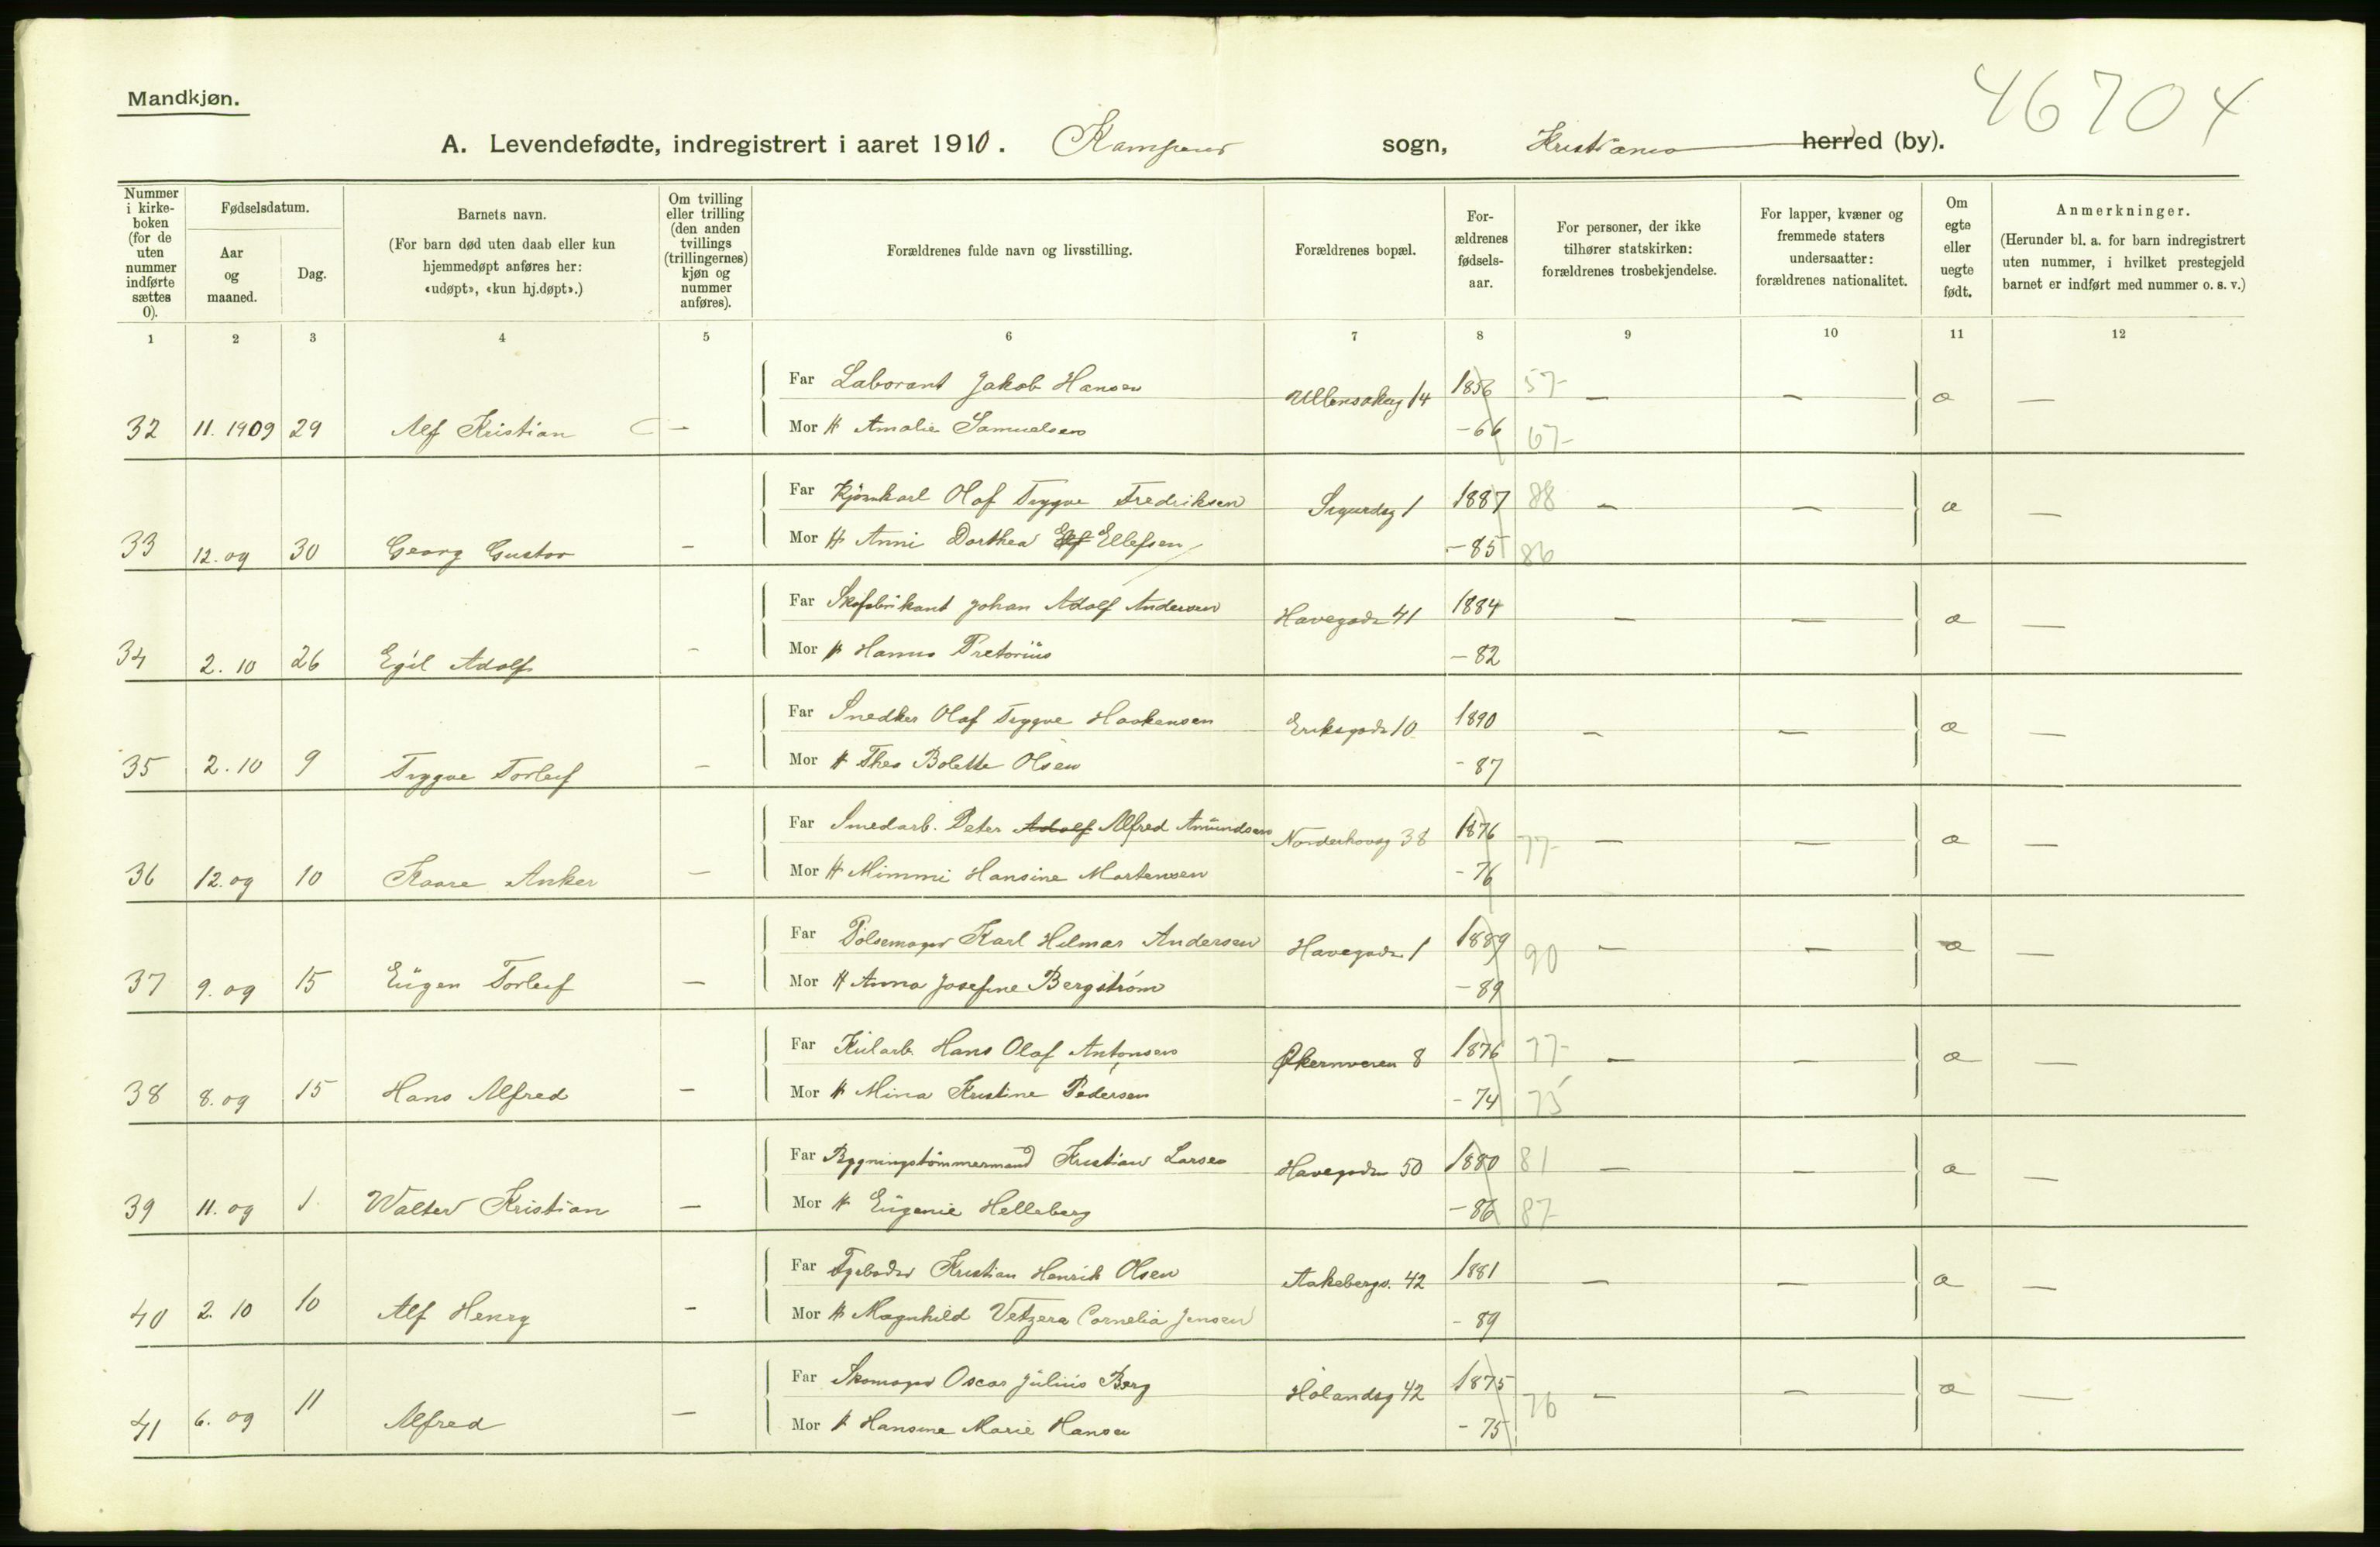 Mandkjøn.
46704
A. Levendefødte, indregistrert i aaret 1910. Kampens sogn, Kristiania herred (by).
Nummer i kirkeboken (for de uten nummer indførte sættes 0).
Fødselsdatum.
Aar og maaned.
Dag.
Barnets navn.
(For barn død uten daab eller kun hjemmedøpt anføres her: «udøpt», «kun hj.døpt».)
Om tvilling eller trilling (den anden tvillings (trillingernes) kjøn og nummer anføres).
Forældrenes fulde navn og livsstilling.
Forældrenes bopæl.
Forældrenes fødselsaar.
For personer, der ikke tilhører statskirken: forældrenes trosbekjendelse.
For lapper, kvæner og fremmede staters undersaatter: forældrenes nationalitet.
Om egte eller uegte født.
Anmerkninger.
(Herunder bl. a. for barn indregistrert uten nummer, i hvilket prestegjeld barnet er indført med nummer o. s. v.)
1 2 3 4 5 6 7 8 9 10 11 12
Far Laborant Jakob Hansen Ullensakerg 14 1856 57 — — æ —
32 11. 1909 29 Alf Kristian — Mor H Amalie Samuelsen - 66 67
Far Kjørekarl Olaf Trygve Fredriksen Sigurdsg 1 1887 88 — — æ —
33 12. 09 30 Georg Gustav — Mor H Anni Dorthea Ellefsen - 85 86
Far Skofabrikant Johan Adolf Andersen Havegada 41 1884 — — æ —
34 2. 10 26 Egil Adolf — Mor H Hanna Pretorius - 82
Far Snedker Olaf Trygve Haakensen Eriksgada 10 1890 — — æ —
35 2. 10 9 Trygve Torleif — Mor H Thea Bolette Olsen - 87
Far Smedarb. Peter Adolf Alfred Amundsen Norderhovsg 38 1876 77 — — æ —
36 12. 09 10 Kaare Anker — Mor H Mimmi Hansine Martensen - 76
Far Pølsemager Karl Hilmar Andersen Havegada 1 1889 90 — — æ —
37 9. 09 15 Eugen Torleif — Mor H Anna Josefine Bergstrøm - 89
Far Kularb. Hans Olaf Antonsen Økernveien 8 1876 77 — — æ —
38 8. 09 15 Hans Alfred — Mor H Mina Kristine Pedersen - 74 75
Far Bygningstømmermand Kristian Larsen Havegada 50 1880 81 — — æ —
39 11. 09 1 Walter Kristian — Mor H Eugenie Helleberg - 86 87
Far Kristian Henrik Olsen Aakebergv. 42 1881 — — æ —
40 2. 10 10 Alf Henry — Mor H Magnhild Vetzera Cornelia Jensen - 89
Far Skomager Oscar Julius Berg Hølandsg 42 1875 76 — — æ —
41 6. 09 11 Alfred — Mor H Hansine Marie Hansen - 75